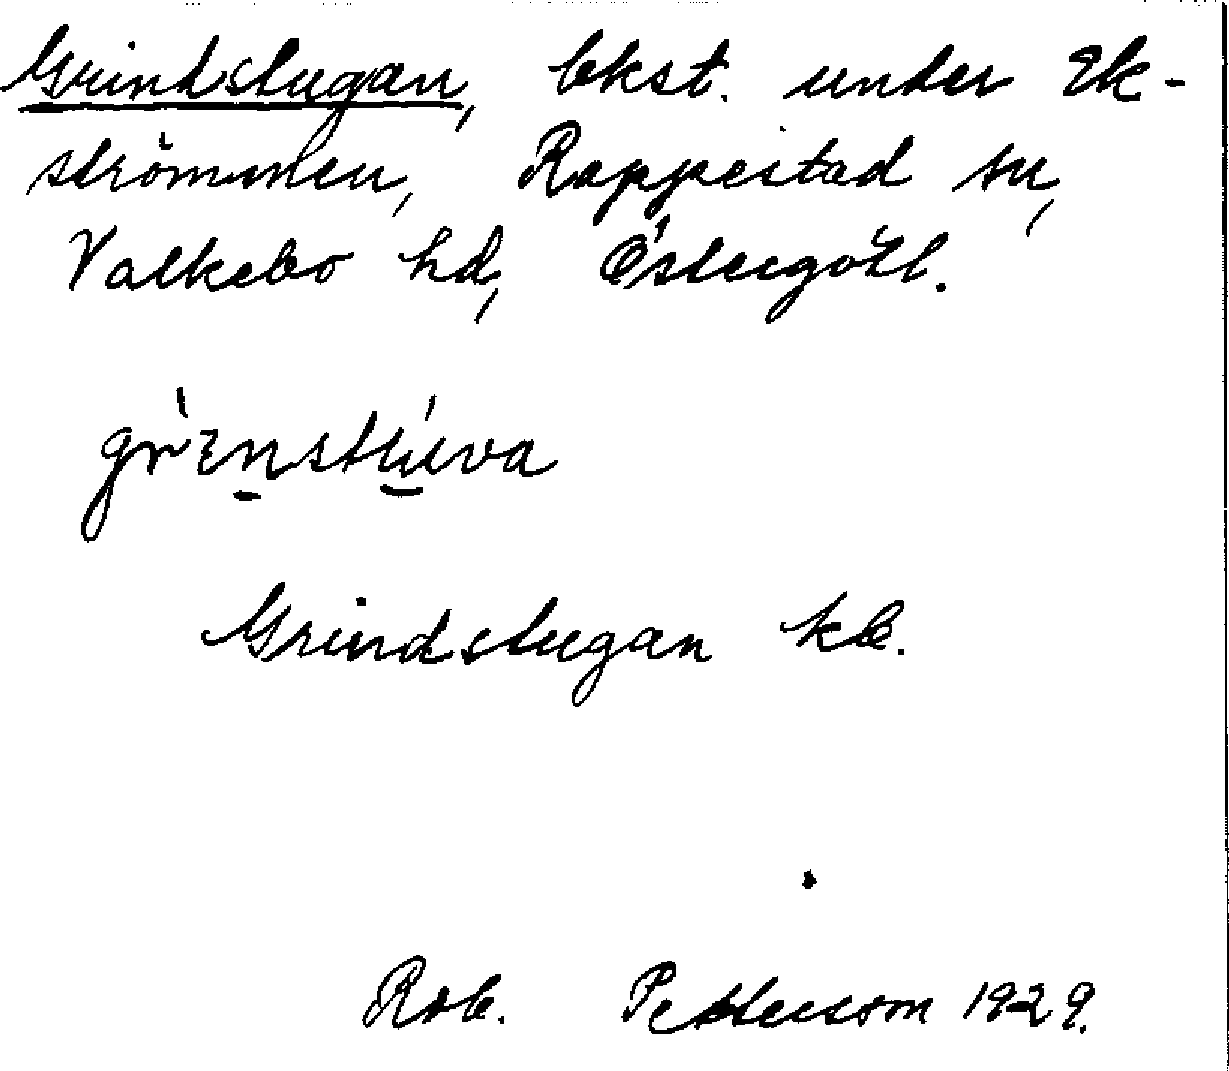 Grindstugan, bkst. under Ek-
strömmen, Rappestad sn,
Valkebo hd, Östergötl.
Grindstugan kb.
Rob. Pettersson 1929.